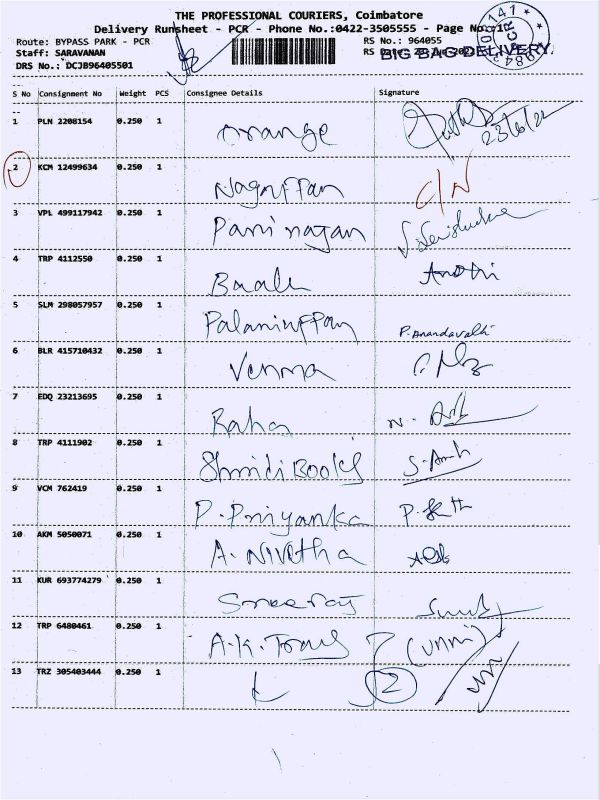 THE PROFESSIONAL COURIERS, Coimbatore
Delivery Runsheet - PCR - Phone No.:0422-3505555 - Page No.:1
Route: BYPASS PARK - PCR RS No.: 964055
Staff: SARAVANAN RS
BIG BAG DELIVERY
DRS No.: DCJB96405501
S No Consignment No Weight PCS Consignee Details Signature
1 PLN 2208154 0.250 1 Orange 23/6/22
2 KCM 12499634 0.250 1 Nagappan C/N
3 VPL 499117942 0.250 1 Pani rajan
4 TRP 4112550 0.250 1 Baalu
5 SLM 298057957 0.250 1 Palaniappan P. Anandavalli
6 BLR 415710432 0.250 1 Venma
7 EDQ 23213695 0.250 1 Raha
8 TRP 4111902 0.250 1 Shridi Books
9 VCM 762419 0.250 1 P. Priyanka
10 AKM 5050071 0.250 1 A. Nivetha
11 KUR 693774279 0.250 1 Sree raj
12 TRP 6480461 0.250 1 A.K. Toms (unni)
13 TRZ 305403444 0.250 1 2